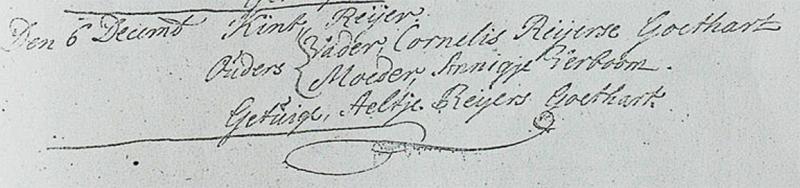 Den 6 Decembr Kint, Reijer.
Ouders { Vader, Cornelis Reijerse Goethart
Moeder, Annigje Verboom.
Getuige, Aeltje Reijers Goethart